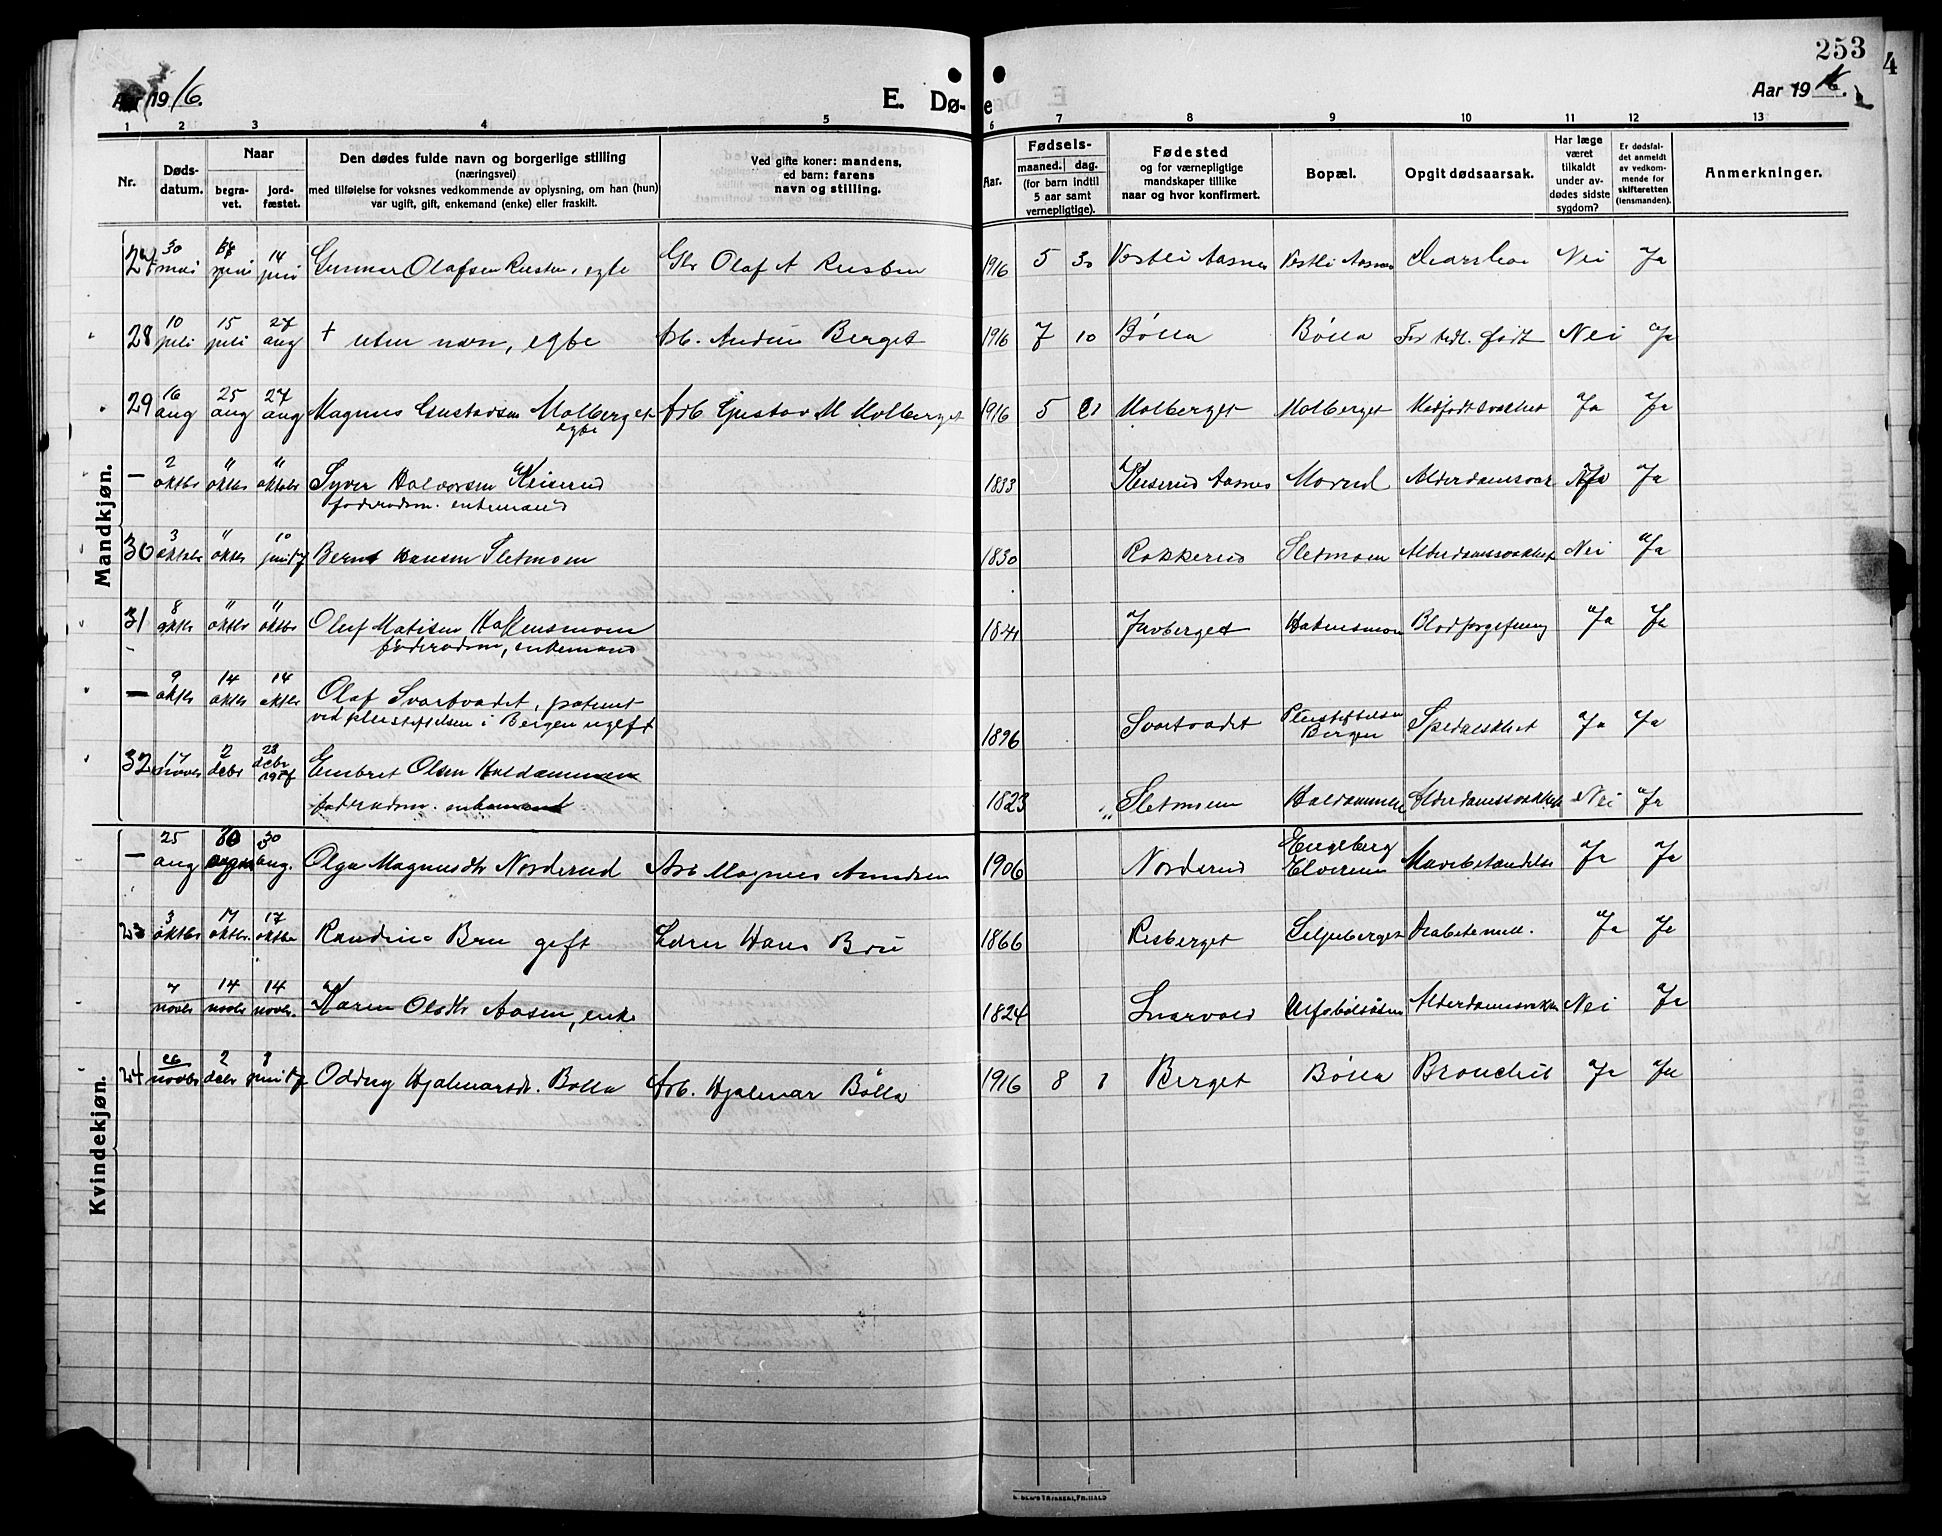 253
4
Aar 1916.
E. Dø-
e
Aar 1916.
1 2 3 4 5 6 7 8 9 10 11 12 13
Nr.
Døds-
datum.
Naar
begra-
vet.
jord-
fæstet.
Den dødes fulde navn og borgerlige stilling
(næringsvei)
med tilføielse for voksnes vedkommende av oplysning, om han (hun)
var ugift, gift, enkemand (enke) eller fraskilt.
Ved gifte koner: mandens,
ed barn: farens
navn og stilling.
Aar.
Fødsels-
maaned. dag.
(for barn indtil
5 aar samt
vernepligtige).
Fødested
og for værnepligtige
mandskaper tillike
naar og hvor konfirmert.
Bopæl.
Opgit dødsaarsak.
Har læge
været
tilkaldt
under av-
dødes sidste
sygdom?
Er dødsfal-
det anmeldt
av vedkom-
mende for
skifteretten
(lensmanden).
Anmerkninger.
Mandkjøn.
27 30 mai juni 14 juni Gunnar Olafsen Rusten, egte Olaf A Rusten 1916 5 30 Vestli Aasnes Vestli Aasnes Nei Ja
28 10 juli 15 juli 27 aug + uten navn, egte Arb. Berget 1916 7 10 Bölla Bölla født Nei Ja
29 16 aug 25 aug 27 aug Magnus Gustavsen Molberget Arb. Gustav M Molberget 1916 5 Molberget Molberget Medfødt svakhet Ja Ja
egte
— 2 oktbr " oktbr " oktobr Syver Halvorsen Keiserud 1833 Keiserud Aasnes Morud Ja
føderaadsm. enkemand
30 3 oktobr " oktbr 10 juni 17 Bernt Hansen Sletmoen 1830 Rokkerud Sletmoen Alderdomssvakhet Nei Ja
31 8 oktbr " oktbr " oktbr Oluf Matisen Hakensmoen 1841 Juvberget Hakensmoen Blodforgiftning Ja Ja
føderaadsm, enkemand
— 9 oktbr 14 oktbr 14 oktbr Olaf Svartvadet, patient
ved pleiestiftelsen i Bergen ugift 1896 Svartvadet Pleiestiftelsen
Bergen Spedalskhet Ja Ja
32 17 novbr 2 debr 28 debr 1917 Embret Olsen Haldammen
føderaadsm. enkemand 1823 Sletmoen Haldammen Alderdomssvakhet Nei Ja
Kvindekjøn.
— 25 aug 30 30 aug. Olga Magnusdtr Norderud Arb Magnus Amundsen 1906 Norderud Engeberg
Elverum Mavebetændelse Ja Ja
23 3 oktbr 17 oktbr. 17 oktbr Randine Bru gift Lærer Hans Bru 1866 Risberget Siljuberget Diabetes mell. Ja Ja
7 novbr 14 novbr 14 novbr. Karen Olsdtr Aasen, enke 1824 Snarvold Alderdomssvakhet Nei Ja
24 26 novbr 2 debr juni 17 Oddny Hjalmarsdtr. Bölla Arb. Hjalmar Bölla 1916 8 1 Berget Bölla Bronchit Ja Ja